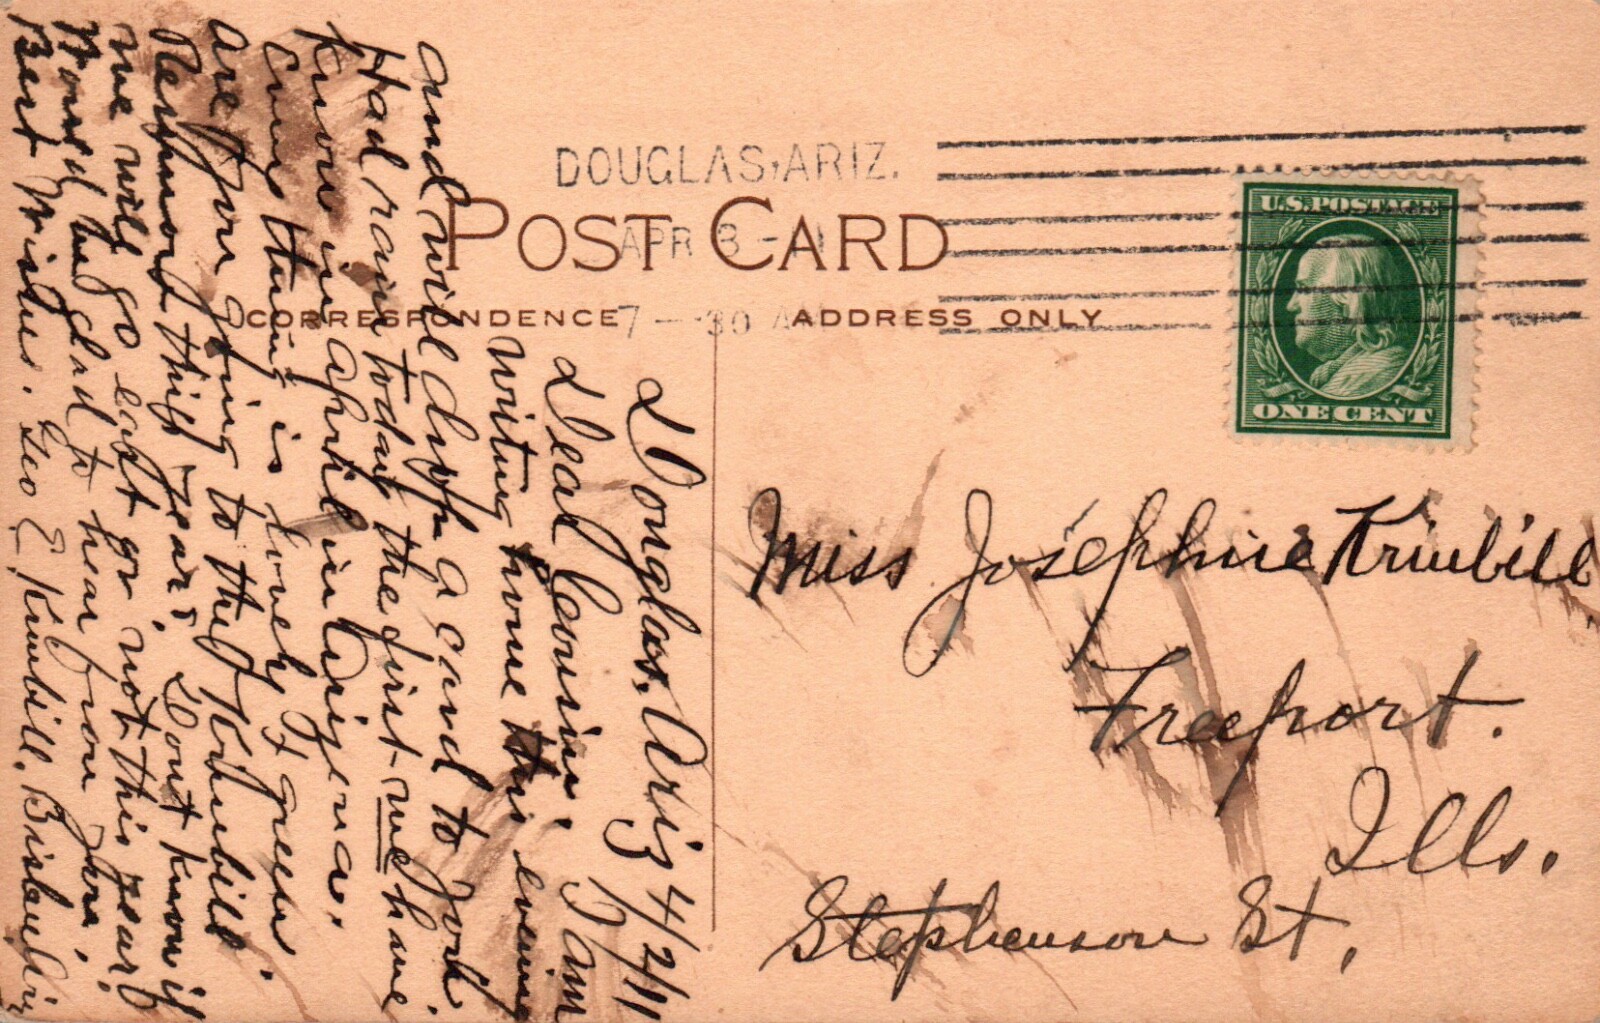 DOUGLAS, ARIZ.
APR 3
7 - 30 A
POST CARD
CORRESPONDENCE
ADDRESS ONLY
U.S. POSTAGE
ONE CENT
Miss Josephine Krimbill
Freeport.
Ills.
Stephenson St,
Douglas. Ariz 4/2/11
Dear Cousin. I am
writing home this evening
and will drop a card to you.
Had rain today the first we have
know in April in Arizona.
Every thing is lovely & green.
are you going to the Krimbill
Reunion this year? Dont know if
me will go east or not this year?
Would be glad to hear from you.
Best Wishes. Geo E Krimbill. Bisbee Ariz